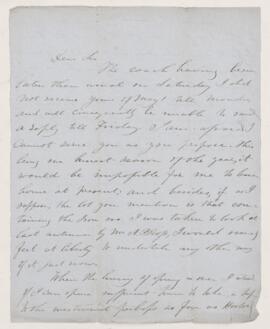 Dear Sir
The coach having been
later than usual on Saturday I did
not receive yours of 3 May till Monday
and will consequently be unable to send
a reply till Friday. I am afraid I
cannot serve you as you propose. This
being our busiest season of the year, it
would be impossible for me to leave
home at present; and besides, if as I
suppose, the lot you mention is that con-
taining the Iron ore I was taken to look at
last autumn by Mr I would not
feel at liberty to undertake any other way
of it just now.
When the hurry of spring is over I
if I can spare
to the westward perhaps as far as